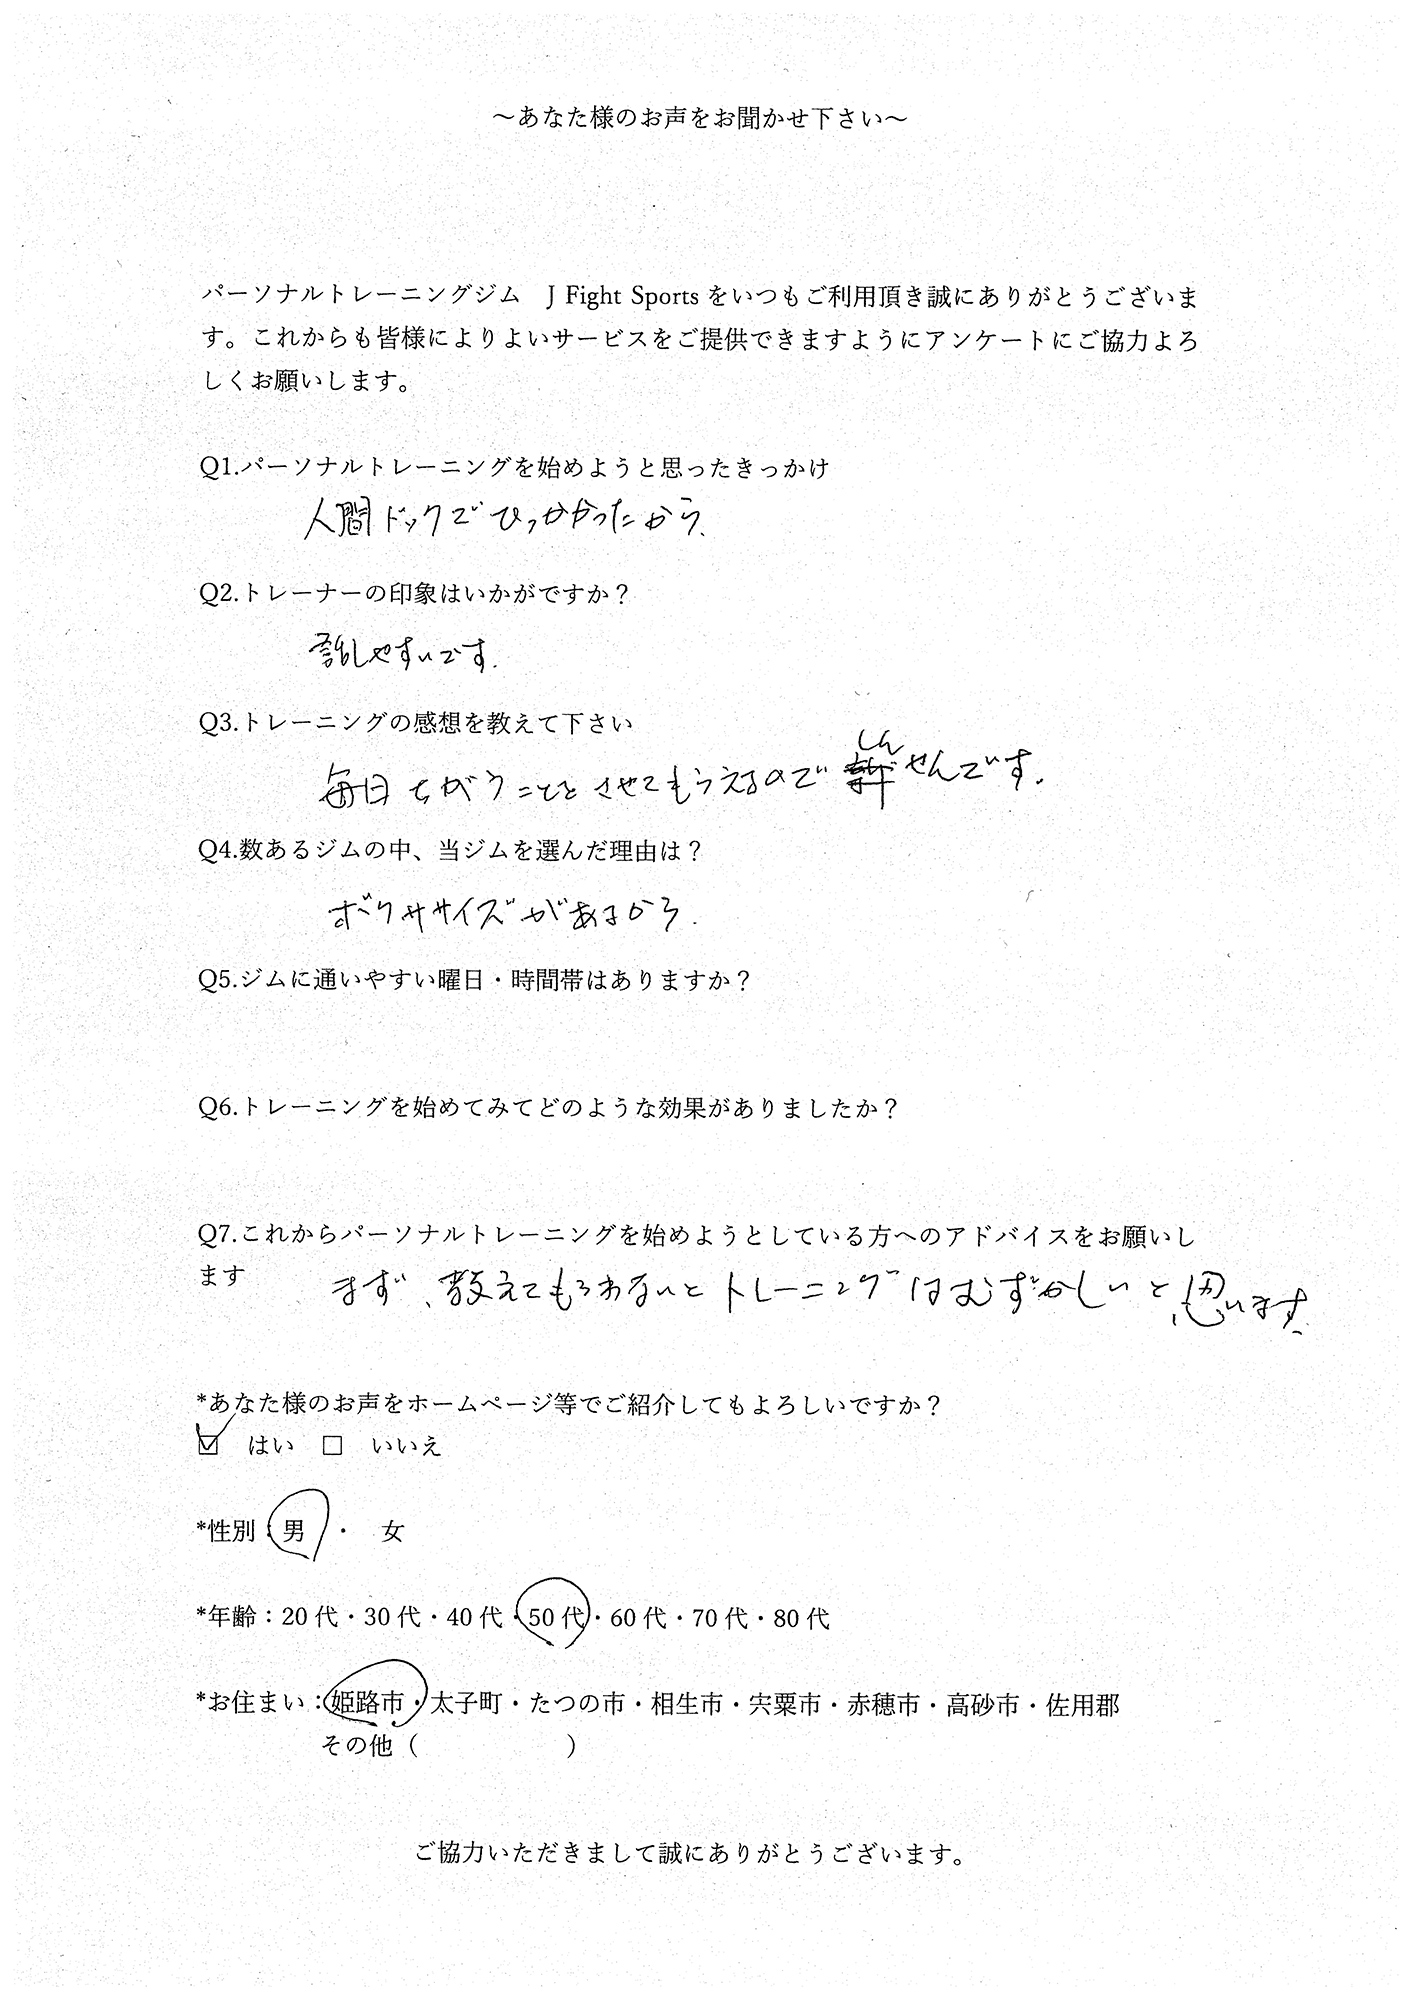 ～あなた様のお声をお聞かせ下さい～
パーソナルトレーニングジム　J Fight Sports をいつもご利用頂き誠にありがとうございま
す。これからも皆様によりよいサービスをご提供できますようにアンケートにご協力よろ
しくお願いします。
Q1.パーソナルトレーニングを始めようと思ったきっかけ
人間ドックでひっかかったから.
Q2.トレーナーの印象はいかがですか？
話しやすいです.
Q3.トレーニングの感想を教えて下さい
毎日ちがうことをさせてもらえるので しんせんです.
Q4.数あるジムの中、当ジムを選んだ理由は？
ボクササイズがあるから.
Q5.ジムに通いやすい曜日・時間帯はありますか？
Q6.トレーニングを始めてみてどのような効果がありましたか？
Q7.これからパーソナルトレーニングを始めようとしている方へのアドバイスをお願いし
ます
まず、教えてもらわないとトレーニングはむずかしいと思います.
*あなた様のお声をホームページ等でご紹介してもよろしいですか？
☑　はい　□　いいえ
*性別：男　・　女
*年齢：20 代・30 代・40 代・50 代・60 代・70 代・80 代
*お住まい：姫路市・太子町・たつの市・相生市・宍粟市・赤穂市・高砂市・佐用郡
その他（　　　　　　）
ご協力いただきまして誠にありがとうございます。